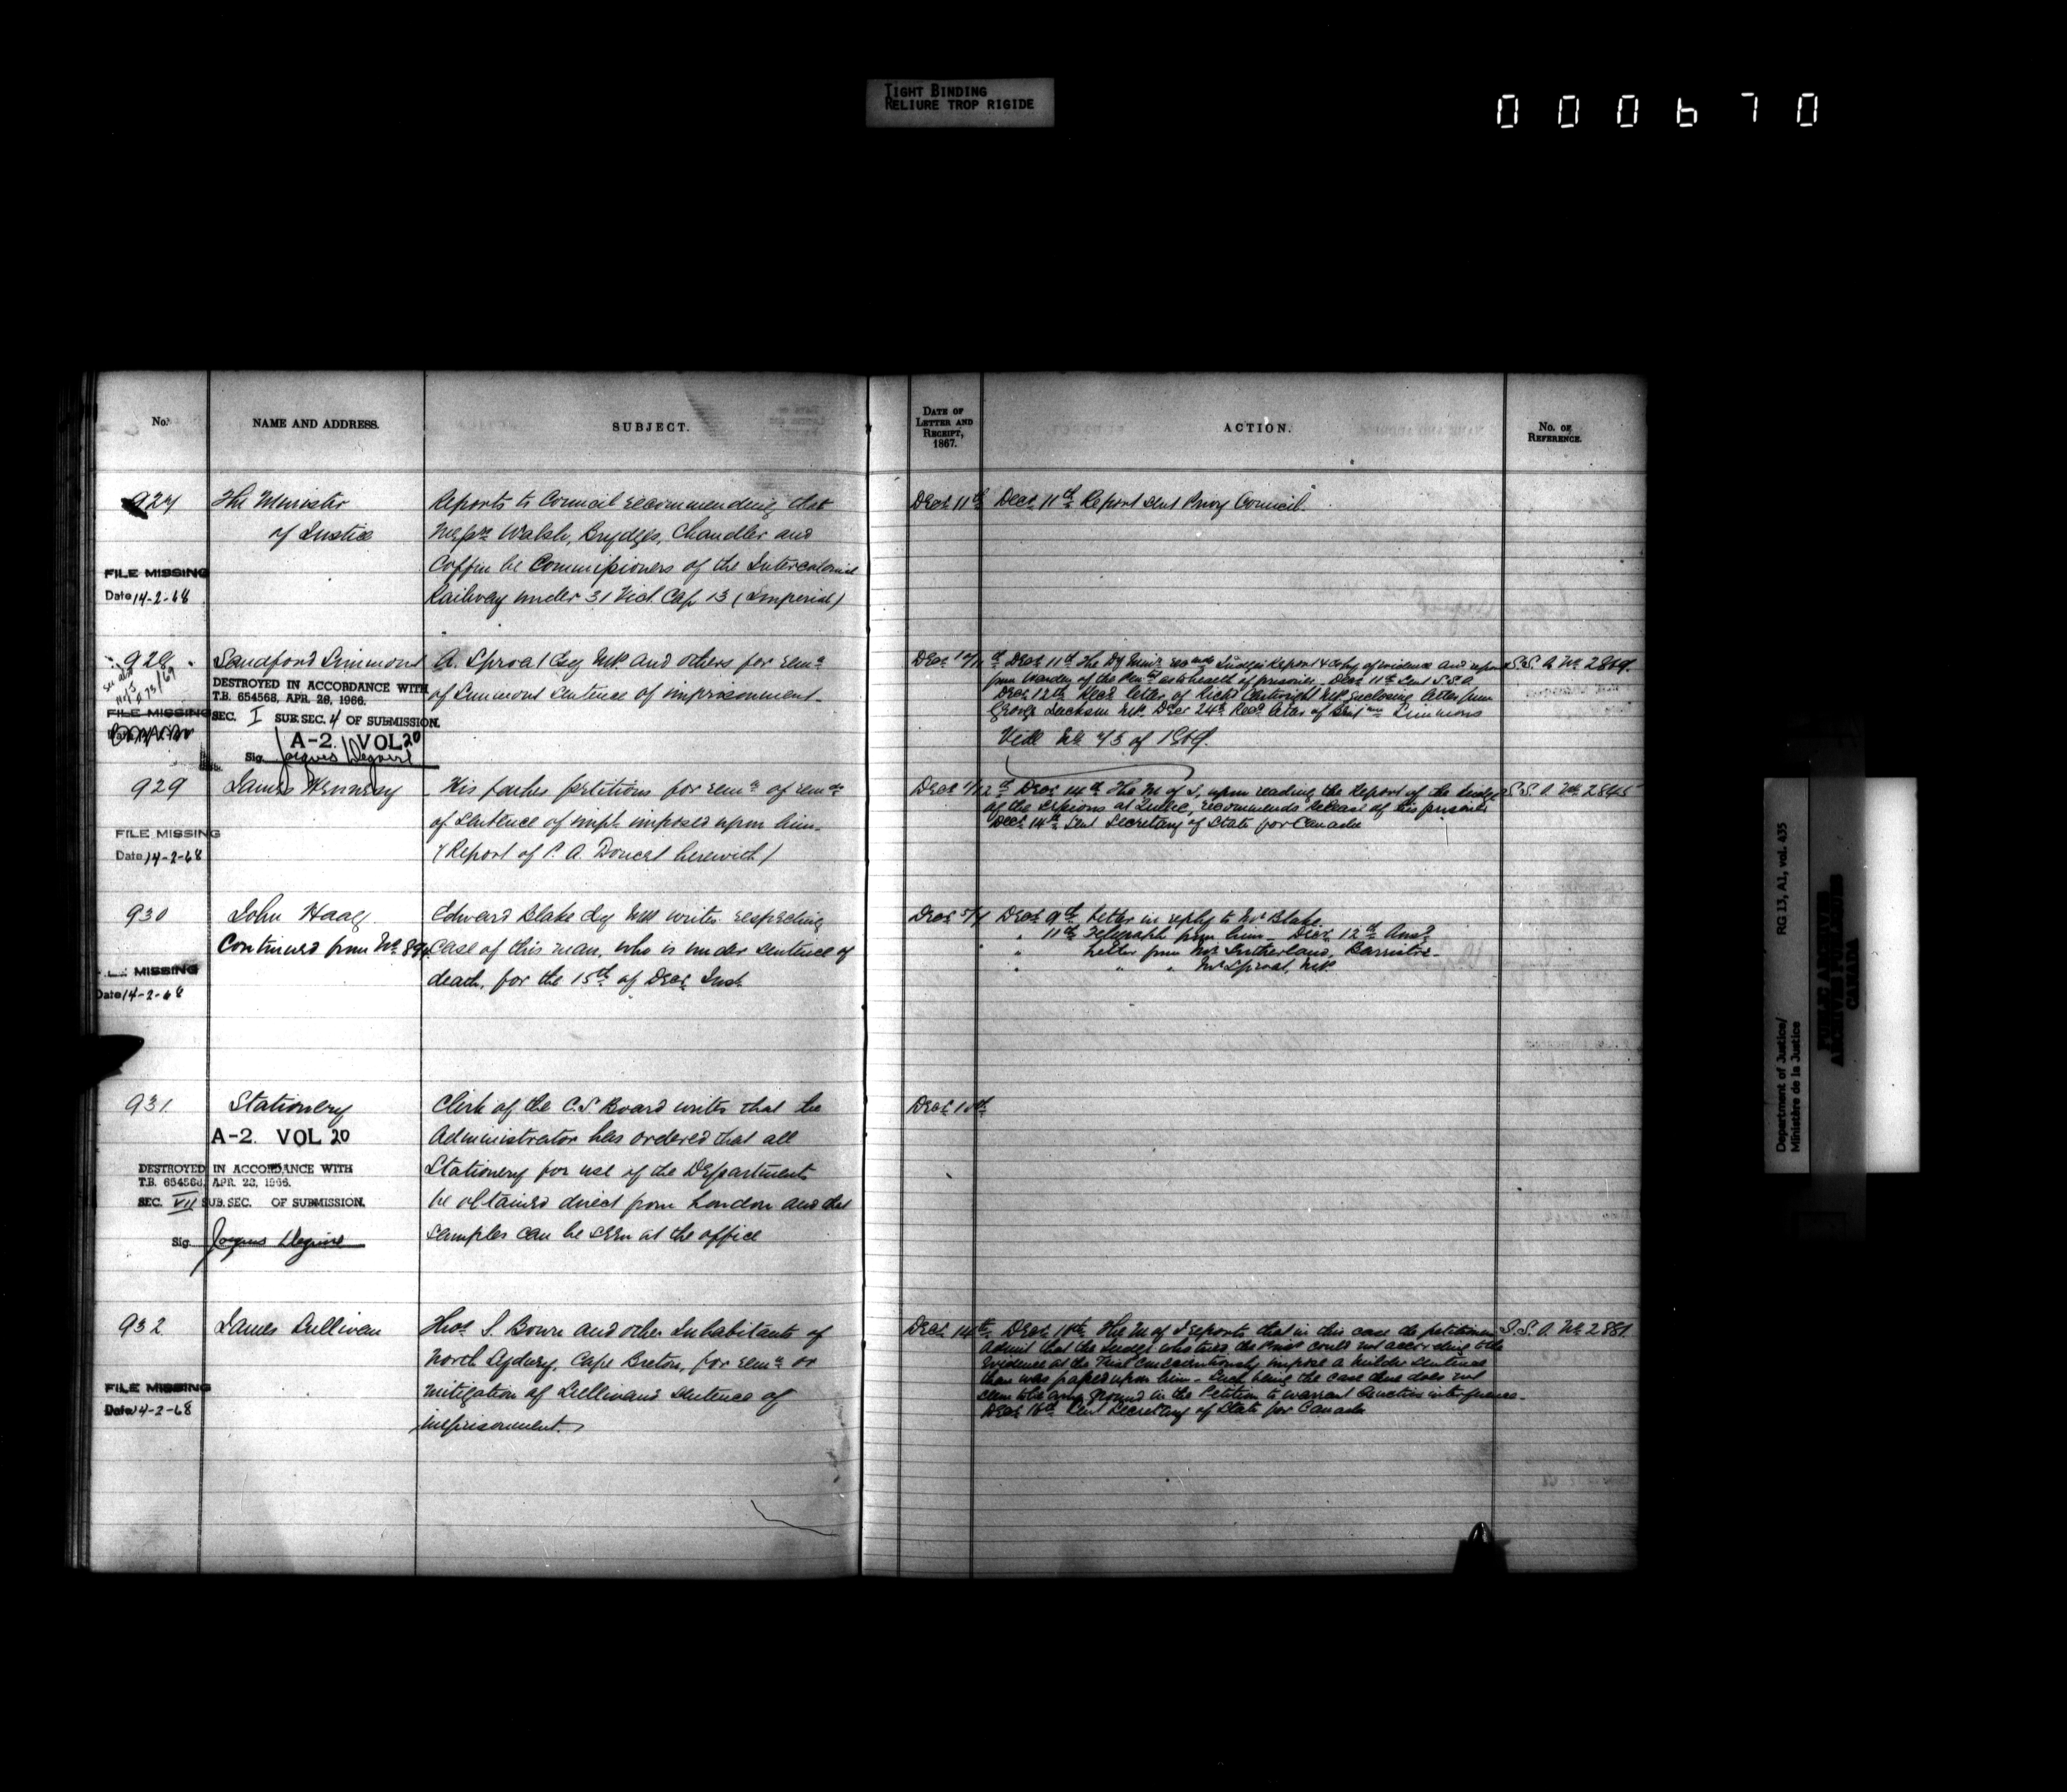 TIGHT BINDING
RELIURE TROP RIGIDE
000670
No.
NAME AND ADDRESS.
SUBJECT.
DATE OF
LETTER AND
RECEIPT,
1867.
ACTION.
No. OF
REFERENCE.
927
The Minister
of Justice
FILE MISSING
Date 14-2-68
Reports to Council recommending that
Messrs Walsh, Brydges, Chandler and
Coffin be Commissioners of the Intercolonial
Railway under 31 Vict. Cap 13 (Imperial)
Decr 11th
Decr 11th Report sent Privy Council.
928
see also
FILE MISSING
Sandford Simmons
DESTROYED IN ACCORDANCE WITH
T.B. 654568, APR. 28, 1966.
SEC. I SUB. SEC. 4 OF SUBMISSION.
A-2. VOL 20
Sig.
A. Sproat Esq MP. and others for remn
of Simmons sentence of imprisonment.
Decr 11th The Dy Minr Judges Report & copy of evidence and
from Warden of the Peny as to health of prisoner. Decr 11th Sent S.S.C.
Decr 12th Recd letter of Richd Cartwright MP. enclosing letter from
George Jackson MP. Decr 24th Recd letter of Benjamn Simmons
Vide No 73 of 1869.
S.S.C. No 2869.
929
James Hennesy
FILE MISSING
Date 14-2-68
His father petitions for remn of
of sentence of impt. imposed upon him.
(Report of P. A. Doucet herewith)
Decr 14th The M of J, upon reading the Report of the Judge
of the Sessions at Quebec, recommends release of this prisoner
Decr 14th Sent Secretary of State for Canada
S.S.C. No 2845
930
John Haag.
Continued from No
MISSING
Date 14-2-68
Edward Blake Esq MP. writes respecting
case of this man, who is under sentence of
death, for the 15th of Decr Inst.
Decr
Decr 9th Letter in reply to Mr Blake
" 11th Telegraph from him – Decr 12th Ansd
" Letter from Mr Sutherland, Barrister.
" " " Mr Sproat, MP.
931
Stationery
A-2. VOL 20
DESTROYED IN ACCORDANCE WITH
T.B. 654568, APR. 28, 1966.
SEC. VII SUB. SEC. OF SUBMISSION.
Sig.
Clerk of the C.S. Board writes that the
Administrator has ordered that all
Stationery for use of the Departments
be obtained direct from London and that
samples can be seen at the office
Decr
932
James Sullivan
FILE MISSING
Date 14-2-68
Thos S. Bown and other Inhabitants of
North Sydney, Cape Breton, for remn or
mitigation of Sullivan's sentence of
imprisonment.
Decr 14th
Decr The M of J reports that in this case the petitioners
admit that the Judge who tried the Prisr could not according to the
evidence at the Trial conscientiously impose a milder sentence
than was passed upon him. Such being the case there does not
seem to be any ground in the Petition to warrant Executive interference.
Decr Sent Secretary of State for Canada
S.S.C. No 2881
Department of Justice/
Ministère de la Justice
RG 13, A1, vol. 435
PUBLIC ARCHIVES
ARCHIVES PUBLIQUES
CANADA